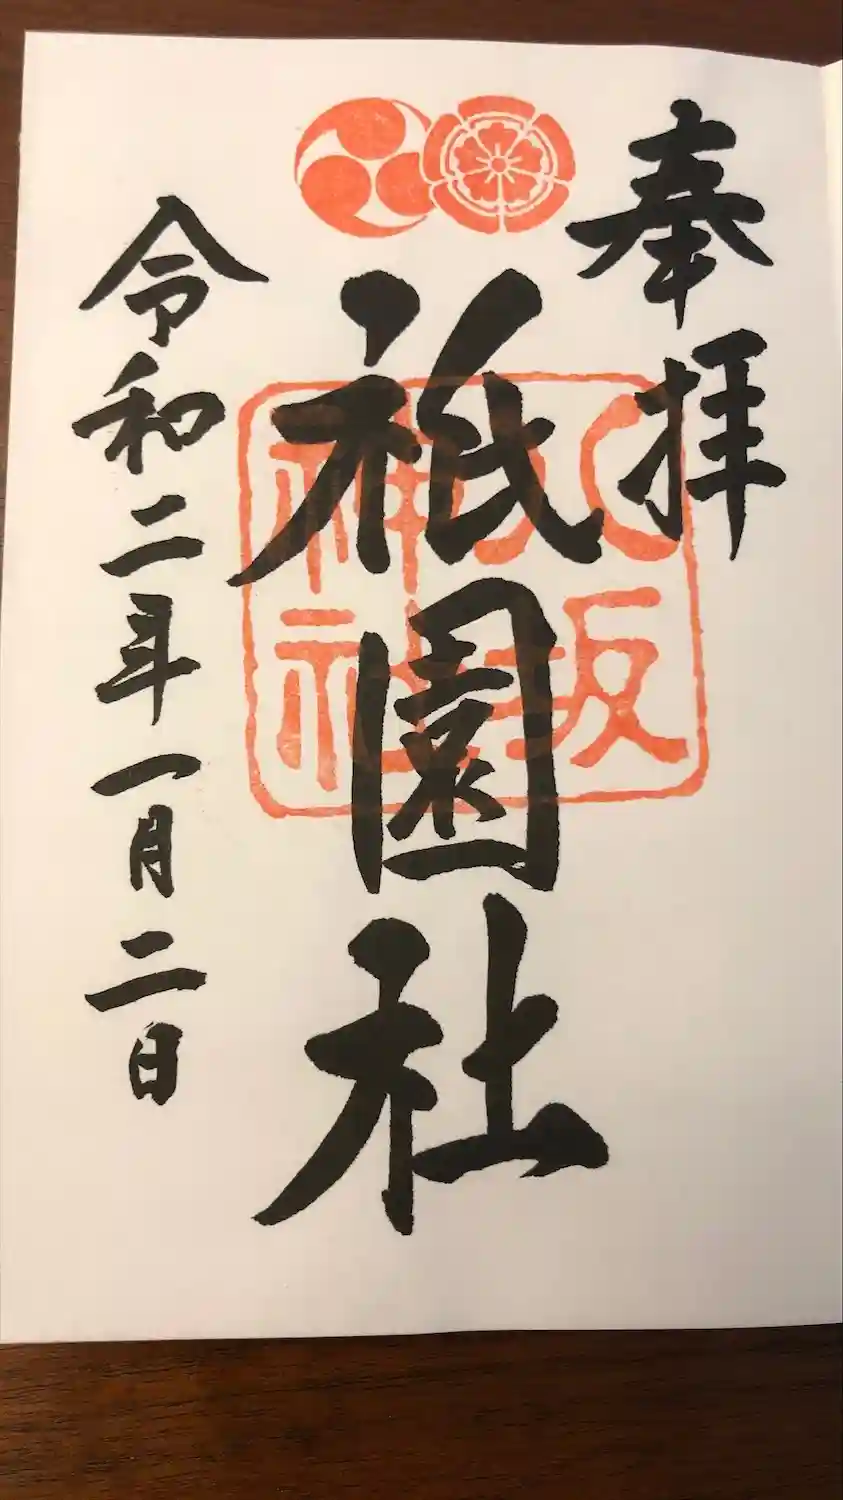 奉拝
祇園社
八坂
神社
令和二年一月二日